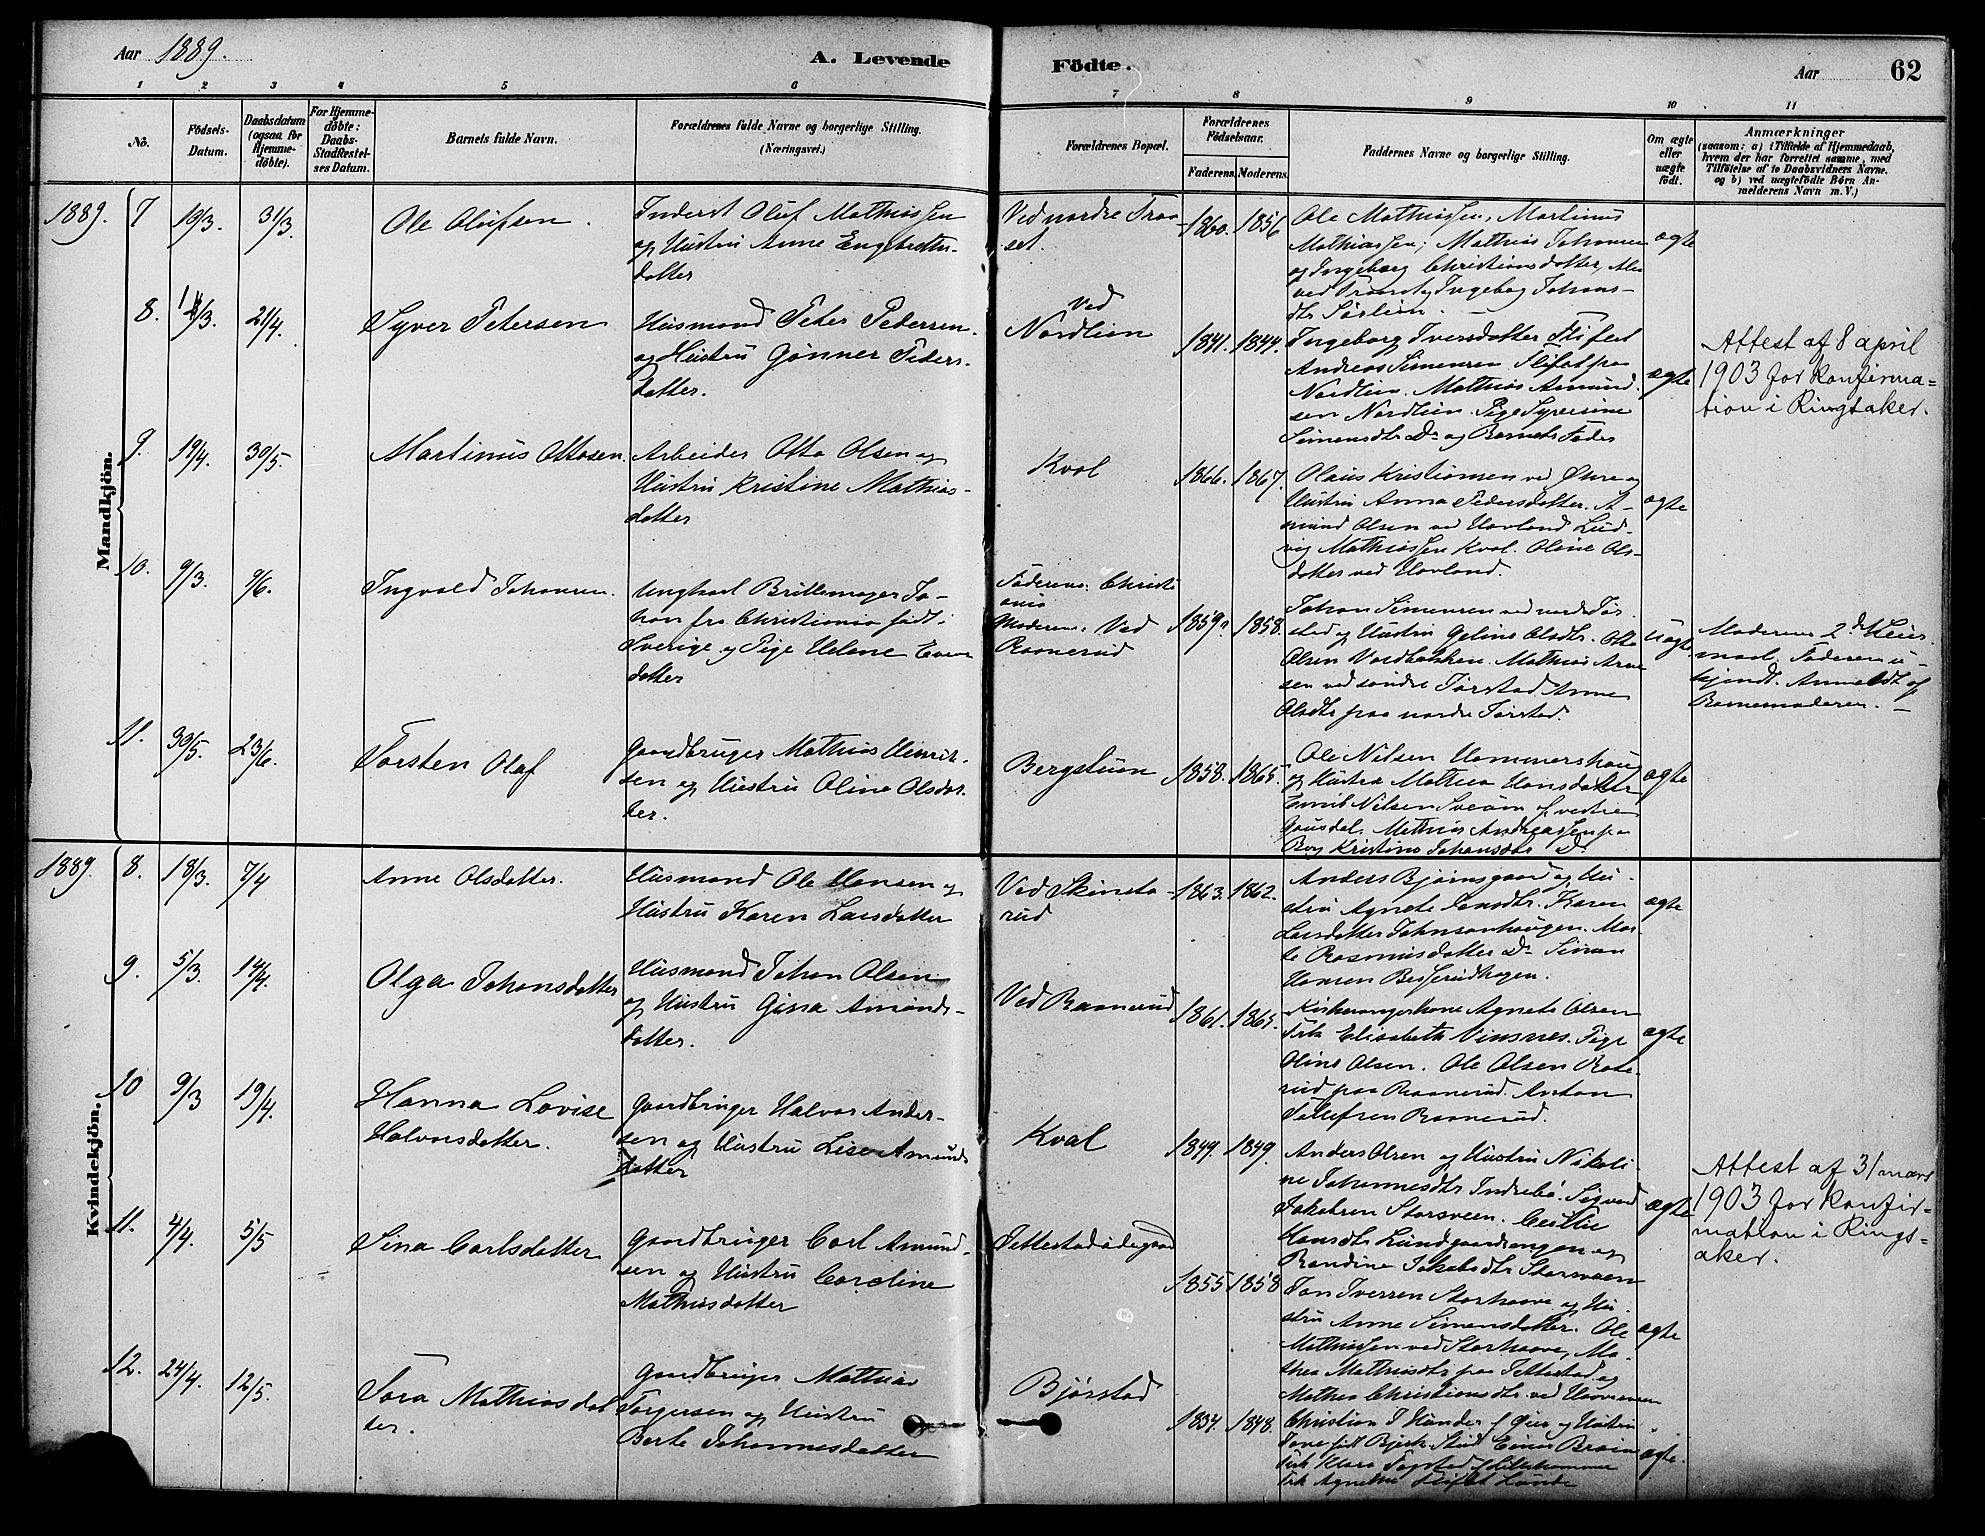 Aar 1889.
A. Levende
Födte.
Aar
62
1 2 3 4 5 6 7 8 9 10 11
No.
Födsels-
Datum.
Daabsdatum
(ogsaa for
Hjemme-
döbte).
For Hjemme-
döbte:
Daabs-
Stadfæstel-
ses Datum.
Barnets fulde Navn.
Forældrenes fulde Navne og borgerlige Stilling.
(Næringsvei.)
Forældrenes Bopæl.
Forældrenes
Födselsaar.
Faderens. Moderens.
Faddernes Navne og borgerlige Stilling.
Om ægte
eller
uægte
födt.
Anmærkninger
(saasom: a) i Tilfælde af Hjemmedaab,
hvem der har forrettet samme, med
Tilföielse af to Daabsvidners Navne.
og b) ved uægtefödte Börn An-
melderens Navn m. V.)
Mandkjön.
1889. 7 19/3. 31/3.
Ole Olufsen.
Inderst Oluf Mathiassen
og Hustru Anne Engebretts-
datter
Ved nordre Traa
set.
1860. 1856
Ole Mathiassen, Martinus
Mathiassen, Mathias Johansen
og Ingeborg Christiansdatter, Alle
ved Traaset, Ingeborg Johans-
dtr Sørlien.
ægte
8. 21/4.
Syver Petersen
Husmand Peter Pedersen
og Hustru Gønner Peders-
datter.
Ved
Nordlien
1841. 1844.
Ingeborg Iversdatter Fliflet
Andreas Simensen Fliflet paa
Nordlien. Mathias Amund
sen Nordlien. Pige Syversine
Simensdtr Do og Barnets Fader
ægte
Attest af 8 april
1903 for konfirma=
tion i Ringsaker.
9. 19/4. 30/5.
Martinus Ottosen.
Arbeider Otto Olsen og
Hustru Kristine Mathias-
datter
Kval
1866. 1867.
Olaus Kristiansen ved og
Hustru Anna Pedersdatter. A-
mund Olsen ved Hovland Lud
vig Mathiassen Kval. Oline Ols-
datter ved Hovland.
ægte
10. 9/3. 9/6.
Ingvald Johansen.
Ungkarl Brillemager Jo-
han fra Christiania født i
Sverige og Pige Helene Evens
datter
Faderens: Christi
ania
Moderens: Ved
Raanerud
1859. 1858.
Johan Simensen ved nordre Tør
stad og Hustru Geline Olsdtr. Otto
Olsen Mathias Arne
sen ved søndre Tørstad Anne
Olsdtr paa nordre Tørstad.
uægte
Moderens 2d Leier
maal, Faderen u-
kjendt. Anmeldt af
Barnemoderen.
11. 30/5. 23/6.
Torsten Olaf
Gaardbruger Mathias Henrik-
sen og Hustru Oline Olsdat-
ter.
Bergstuen
1858. 1865.
Ole Nilsen Hammershaug
og Hustru Mathea Hansdatter
Emil Nilsen Sveom af vestre
Gausdal. Mathias Andreassen paa
Kristine Johansdtr Do
ægte
Kvindekjön.
1889. 8. 18/3. 7/4
Anne Olsdatter.
Husmand Ole Hansen og
Hustru Karen Larsdatter
Ved Skinsta-
rud
1863. 1862.
Anders Bjørnsgaard og Hu-
stru Agnete Karen
Larsdatter Johnsenhaugen. Mar-
te Rasmusdatter Do Simen
Hansen Besserudhagen.
ægte
9. 5/3. 14/4.
Olga Johansdatter
Husmand Johan Olsen
og Hustru Gina Amunds-
datter.
Ved Raanerud
1861. 1865.
Kirkesangerkone Agnete Olsen
Frk Elisabeth Vinsnes. Pige
Oline Olsen. Ole Olsen
rud paa Raanerud. Anton
Raanerud.
ægte
10 9/3 19/4.
Hanna Lovise
Halvorsdatter.
Gaardbruger Halvor Ander-
sen og Hustru Lise Amunds
datter
Kval
1849. 1849.
Anders Olsen og Hustru Nikoli-
ne Johannesdtr Indrebø. Sigvard
Jakobsen Storsveen. Cecilie
Hansdtr Lundgaardsengen og
Randine Jakobsdtr Storsveen
ægte
Attest af 31 mars
1903 for konfir-
mation i Rings-
aker.
11. 4/4. 5/5
Sina Carlsdatter
Gaardbruger Carl Amund-
sen og Hustru Caroline
Mathiasdatter
1855 1858
Jon Iversen Storhaave og Hu-
stru Anne Simensdatter. Ole
Mathiassen ved Storhaave, Ma-
thea Mathiasdtr paa Fettestad og
Mathea Christiansdtr ved
ægte
12. 24/4. 12/5.
Tora Mathiasdat
ter.
Gaardbruger Mathias
Torgersen og Hustru
Berte Johannesdatter
Bjørstad
1834. 1848.
Christian og Hustru
født Bjerke. Stud Einar
Frk Klara Fogstad af Lillehammer
Frk Agnethe Flifet Lunde
ægte.